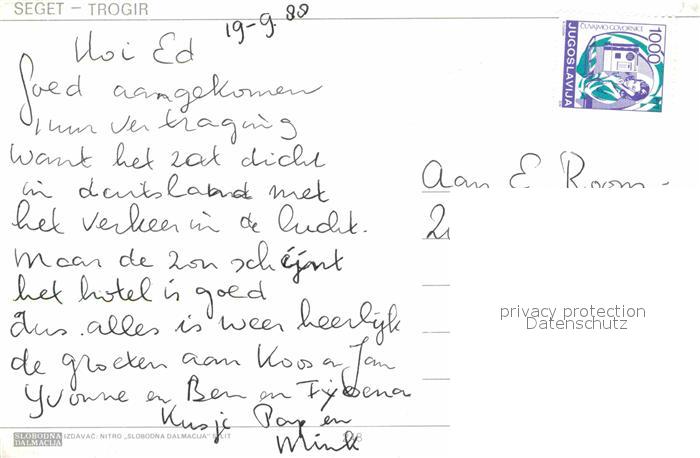 SEGET – TROGIR
19-9 88
Hoi Ed
Goed aangekomen
1 uur vertraging
want het zat dicht
in duitsland met
het verkeer in de lucht.
Maar de zon schijnt
het hotel is goed
dus alles is weer heerlijk
de groeten aan Koos en Jan
Yvonne en Ben en
Kusje Pap en
Mink
SLOBODNA DALMACIJA
IZDAVAČ: NITRO „SLOBODNA DALMACIJA" SPLIT
ČUVAJMO GOVORNICE
1000
JUGOSLAVIJA
Aan E Room
privacy protection
Datenschutz